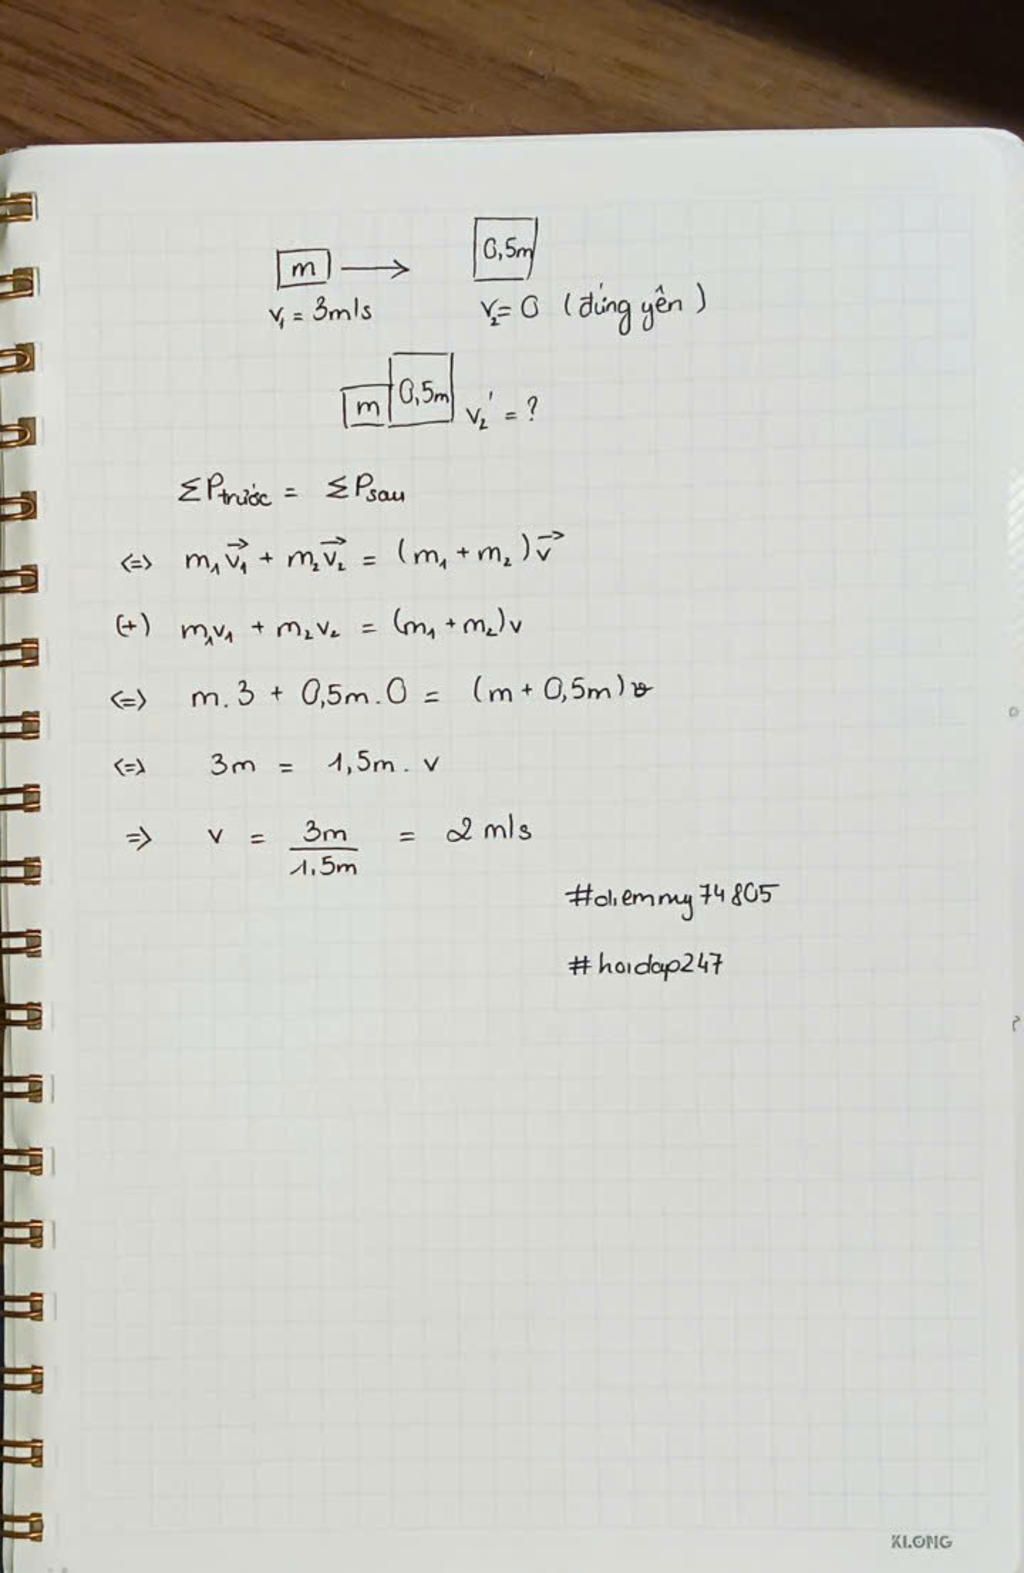 m → 0,5m
v₁ = 3m/s v₂= 0 (đứng yên)
m 0,5m v₂' = ?
ΣPtrước = ΣPsau
<=> m₁v₁⃗ + m₂v₂⃗ = (m₁ + m₂)v⃗
(+) m₁v₁ + m₂v₂ = (m₁ + m₂)v
<=> m.3 + 0,5m.0 = (m + 0,5m)v
<=> 3m = 1,5m. v
=> v = 3m/1,5m = 2 m/s
#diemmy74805
#hoidap247
KLONG